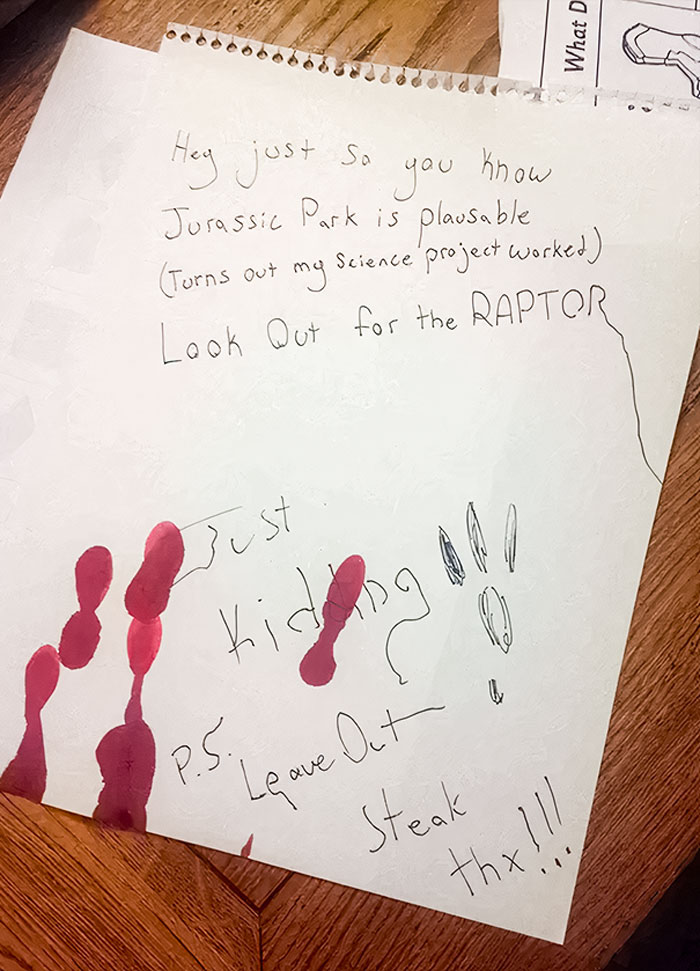 What D
Hey just so you know
Jurassic Park is plausable
(Turns out my Science project worked)
Look Out for the RAPTOR
Just
Kidding !!!
P.S.
Leave Out
Steak
thx!!!